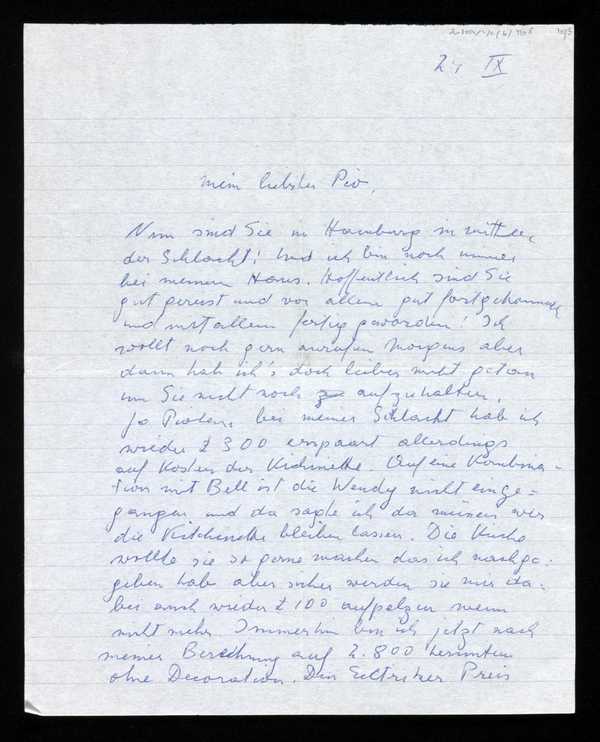 24 IX
Mein liebster Pio,
Nun sind Sie in Hamburg in mitten
der Schlacht! Und ich bin noch immer
bei meinem Haus. Hoffentlich sind Sie
gut gereist und vor allem gut fortgekommen
und mit allem fertig geworden! Ich
wollt noch gern anrufen Morgens aber
dann hab ich's doch lieber nicht getan
um Sie nicht noch aufzuhalten.
Ja bei meiner Schlacht hab ich
wieder £ 300 erspaart allerdings
auf Kosten der Kichinette. Auf eine Kombina-
tion mit Bell ist die Wendy nicht einge-
gangen und da sagte ich da müssen wir
die Kitchinette bleiben lassen. Die Küche
wollte sie so gerne machen das ich nachge-
geben habe aber sicher werden sie mir da-
bei auch wieder £ 100 aufpelzen wenn
nicht mehr. Immerhin bin ich jetzt nach
meiner Berechnung auf 2.800 herunten
ohne Decoration. Der Preis